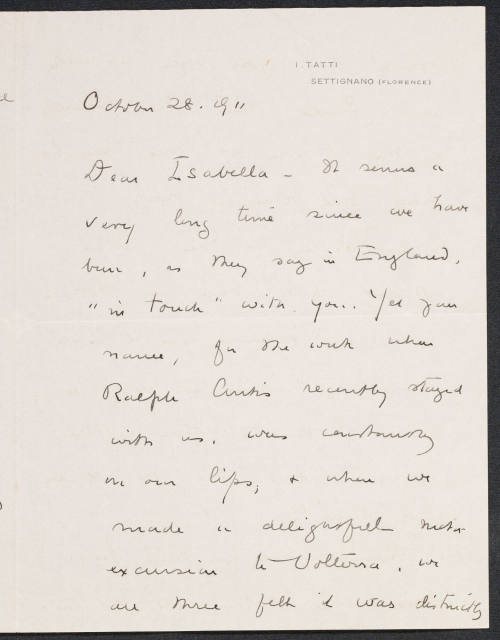 I. TATTI
SETTIGNANO (FLORENCE)
October 28. 1911
Dear Isabella - It seems a
very long time since we have
been, as they say in England,
"in touch" with you. Yet your
name, for the week when
Ralph Curtis recently stayed
with us, was constantly
on our lips, & when we
made a delightful motor
excursion to Volterra, we
all three felt it was distinctly